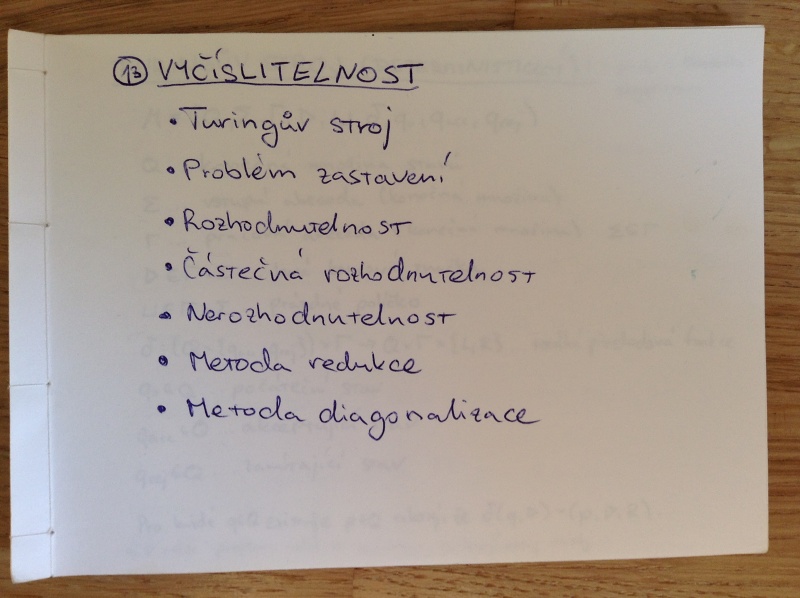 13 VYČÍSLITELNOST
• Turingův stroj
• Problém zastavení
• Rozhodnutelnost
• Částečná rozhodnutelnost
• Nerozhodnutelnost
• Metoda redukce
• Metoda diagonalizace